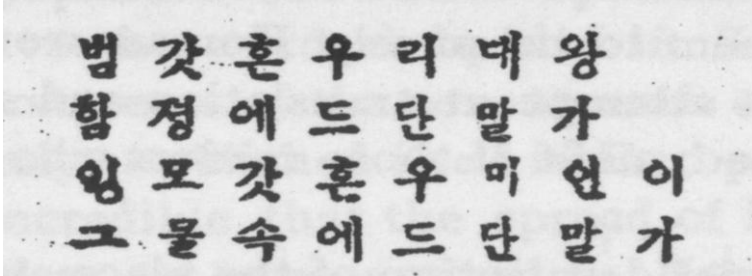 범 갓 흔 우 리 대 왕
함 졍 에 드 단 말 가
잉 모 갓 흔 우 미 인 이
그 물 속 에 드 단 말 가